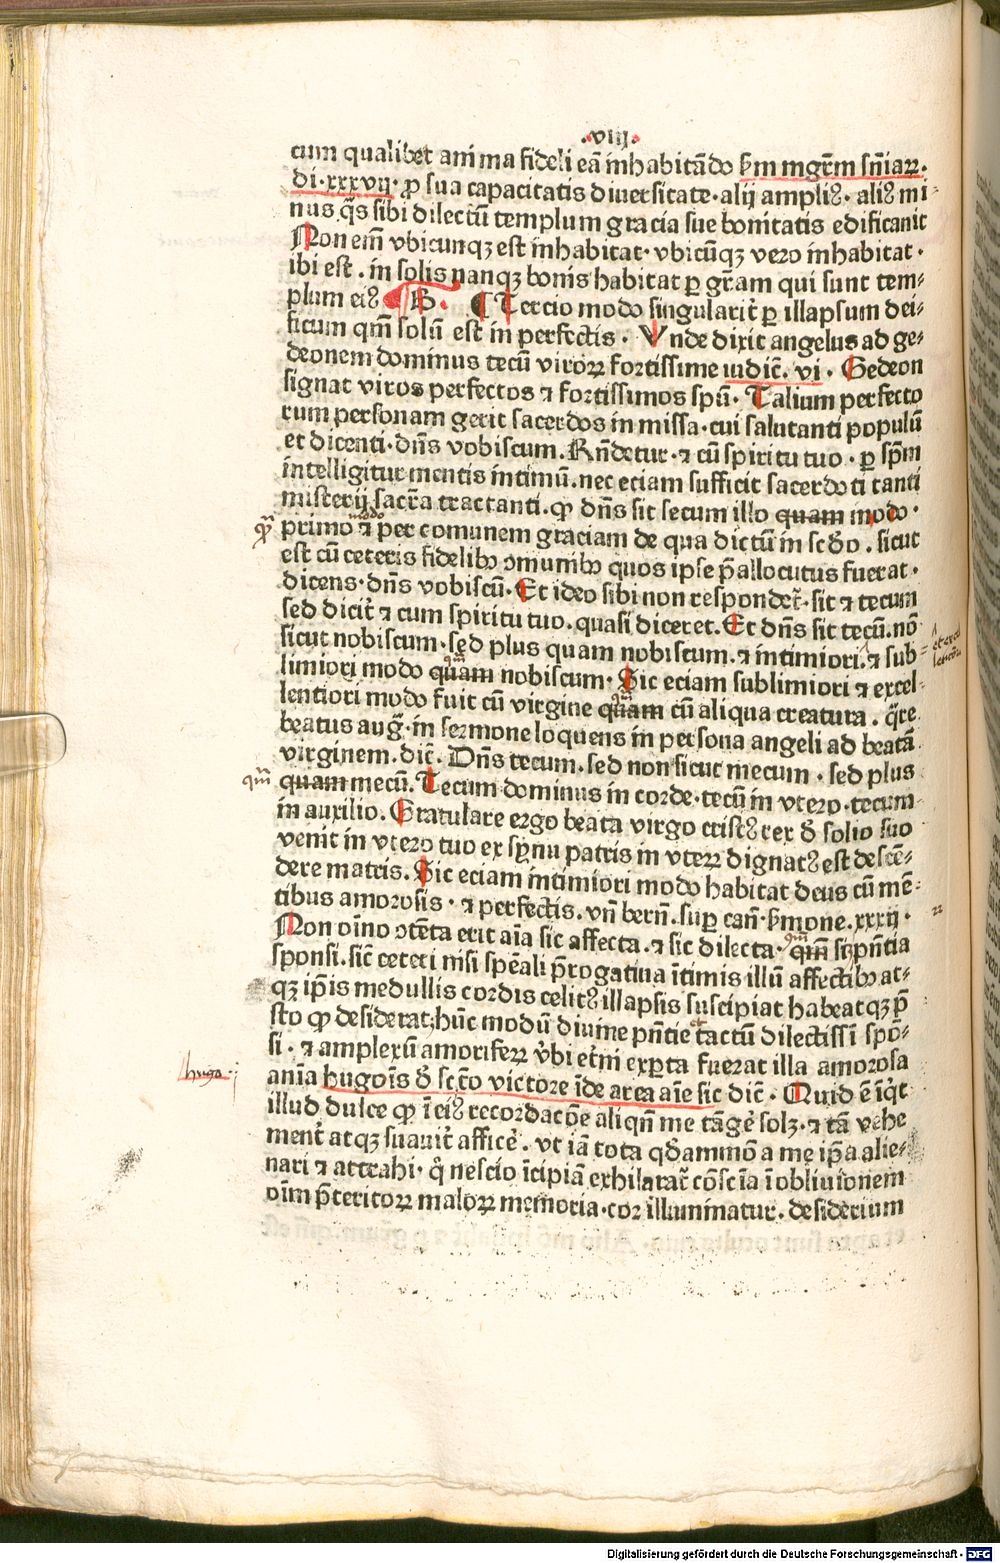 .viij.
cum qualibet anima fideli eā inhabitādo ẜm mgr̄m sn̄iaꝝ.
di.xxxvij. ꝓ sua capacitatis diuersitate. alij ampliꝰ. aliꝰ mi-
nus q̄s sibi dilectū templum gracia sue bonitatis edificauit
Non em̄ vbicunqꝫ est inhabitat. vbicūqꝫ vero inhabitat.
ibi est. in solis nanqꝫ bonis habitat ꝑ gr̄am qui sunt tem-
plum eiꝰ B. ¶ Tercio modo singularit̄ ꝑ illapsum dei-
ficum qm̄ solū est in perfectis. Vnde dixit angelus ad ge-
deonem dominus tecū viroꝝ fortissime iudic̄. vi. Gedeon
signat viros perfectos ⁊ fortissimos spū. Talium perfecto
rum personam gerit sacerdos in missa. cui salutanti populū
et dicenti. dn̄s vobiscum. Rn̄detur. ⁊ cū spiritu tuo. ꝑ sp̄m
intelligitur mentis intimū. nec eciam sufficit sacerdoti tanti
misterij sacr̄a tractanti. ꝙ dn̄s sit secum illo quam modo.
modo
primo ⁊ per comunem graciam de qua dictū in scd̄o. sicut
est cū ceteris fidelibꝰ omnibꝰ quos ipse p̄allocutus fuerat.
dicens. dn̄s vobiscū. Et ideo sibi non respondet̄. sit ⁊ tecum
sed dicit̄ ⁊ cum spiritu tuo. quasi diceret. Et dn̄s sit tecū. nō
sicut nobiscum. sed plus quam nobiscum. ⁊ intimiori. ⁊ sub-
limiori modo quam nobiscum. Sic eciam sublimiori ⁊ excel-
lentiori modo fuit cū virgine quam cū aliqua creatura. q̄re
beatus auḡ. in sermone loquens in persona angeli ad beatā
virginem. dic̄. Dn̄s tecum. sed non sicut mecum. sed plus
qm̄ quam mecū. Tecum dominus in corde. tecū in vtero. tecum
in auxilio. Gratulare ergo beata virgo cristꝰ rex d̄ solio suo
venit in vtero tuo ex synu patris in vteꝝ dignatꝰ est descē-
dere matris. Sic eciam intimiori modo habitat deus cū mē-
tibus amorosis. ⁊ perfectis. vn̄ bern̄. suꝑ can̄. ẜmone.xxxij.
Non oīno ↄtēta erit aīa sic affecta. ⁊ sic dilecta. qm̄ sit pn̄tia
sponsi. sic̄ ceteri nisi spēali p̄rogatiua ītimis illū affectibꝰ at-
qꝫ ip̄is medullis cordis celitꝰ illapsis suscipiat habeatqꝫ p̄
sto ꝙ desiderat; hūc modū diuine pn̄tie tactū dilectissī spō-
si. ⁊ amplexū amorifeꝝ v̄bi et̄ni exꝑta fuerat illa amorosa
hugo
anīa hugoīs d̄ sc̄to victore īde area aīe sic dic̄. Quid ē īq̄t
illud dulce ꝙ ī eiꝰ recordacōe aliqn̄ me tāge̍ solꝫ. ⁊ tā vehe
ment̄ atqꝫ suauit̄ affice̍. vt iā tota q̄dammō a me ip̄a alie-
nari ⁊ attrahi. q̄ nescio īcipiā exhilarat̄ cōsc̄ia ī obliuionem
oīm p̄teritoꝝ maloꝝ memoria. cor illuminatur. desiderium
Digitalisierung gefördert durch die Deutsche Forschungsgemeinschaft - DFG